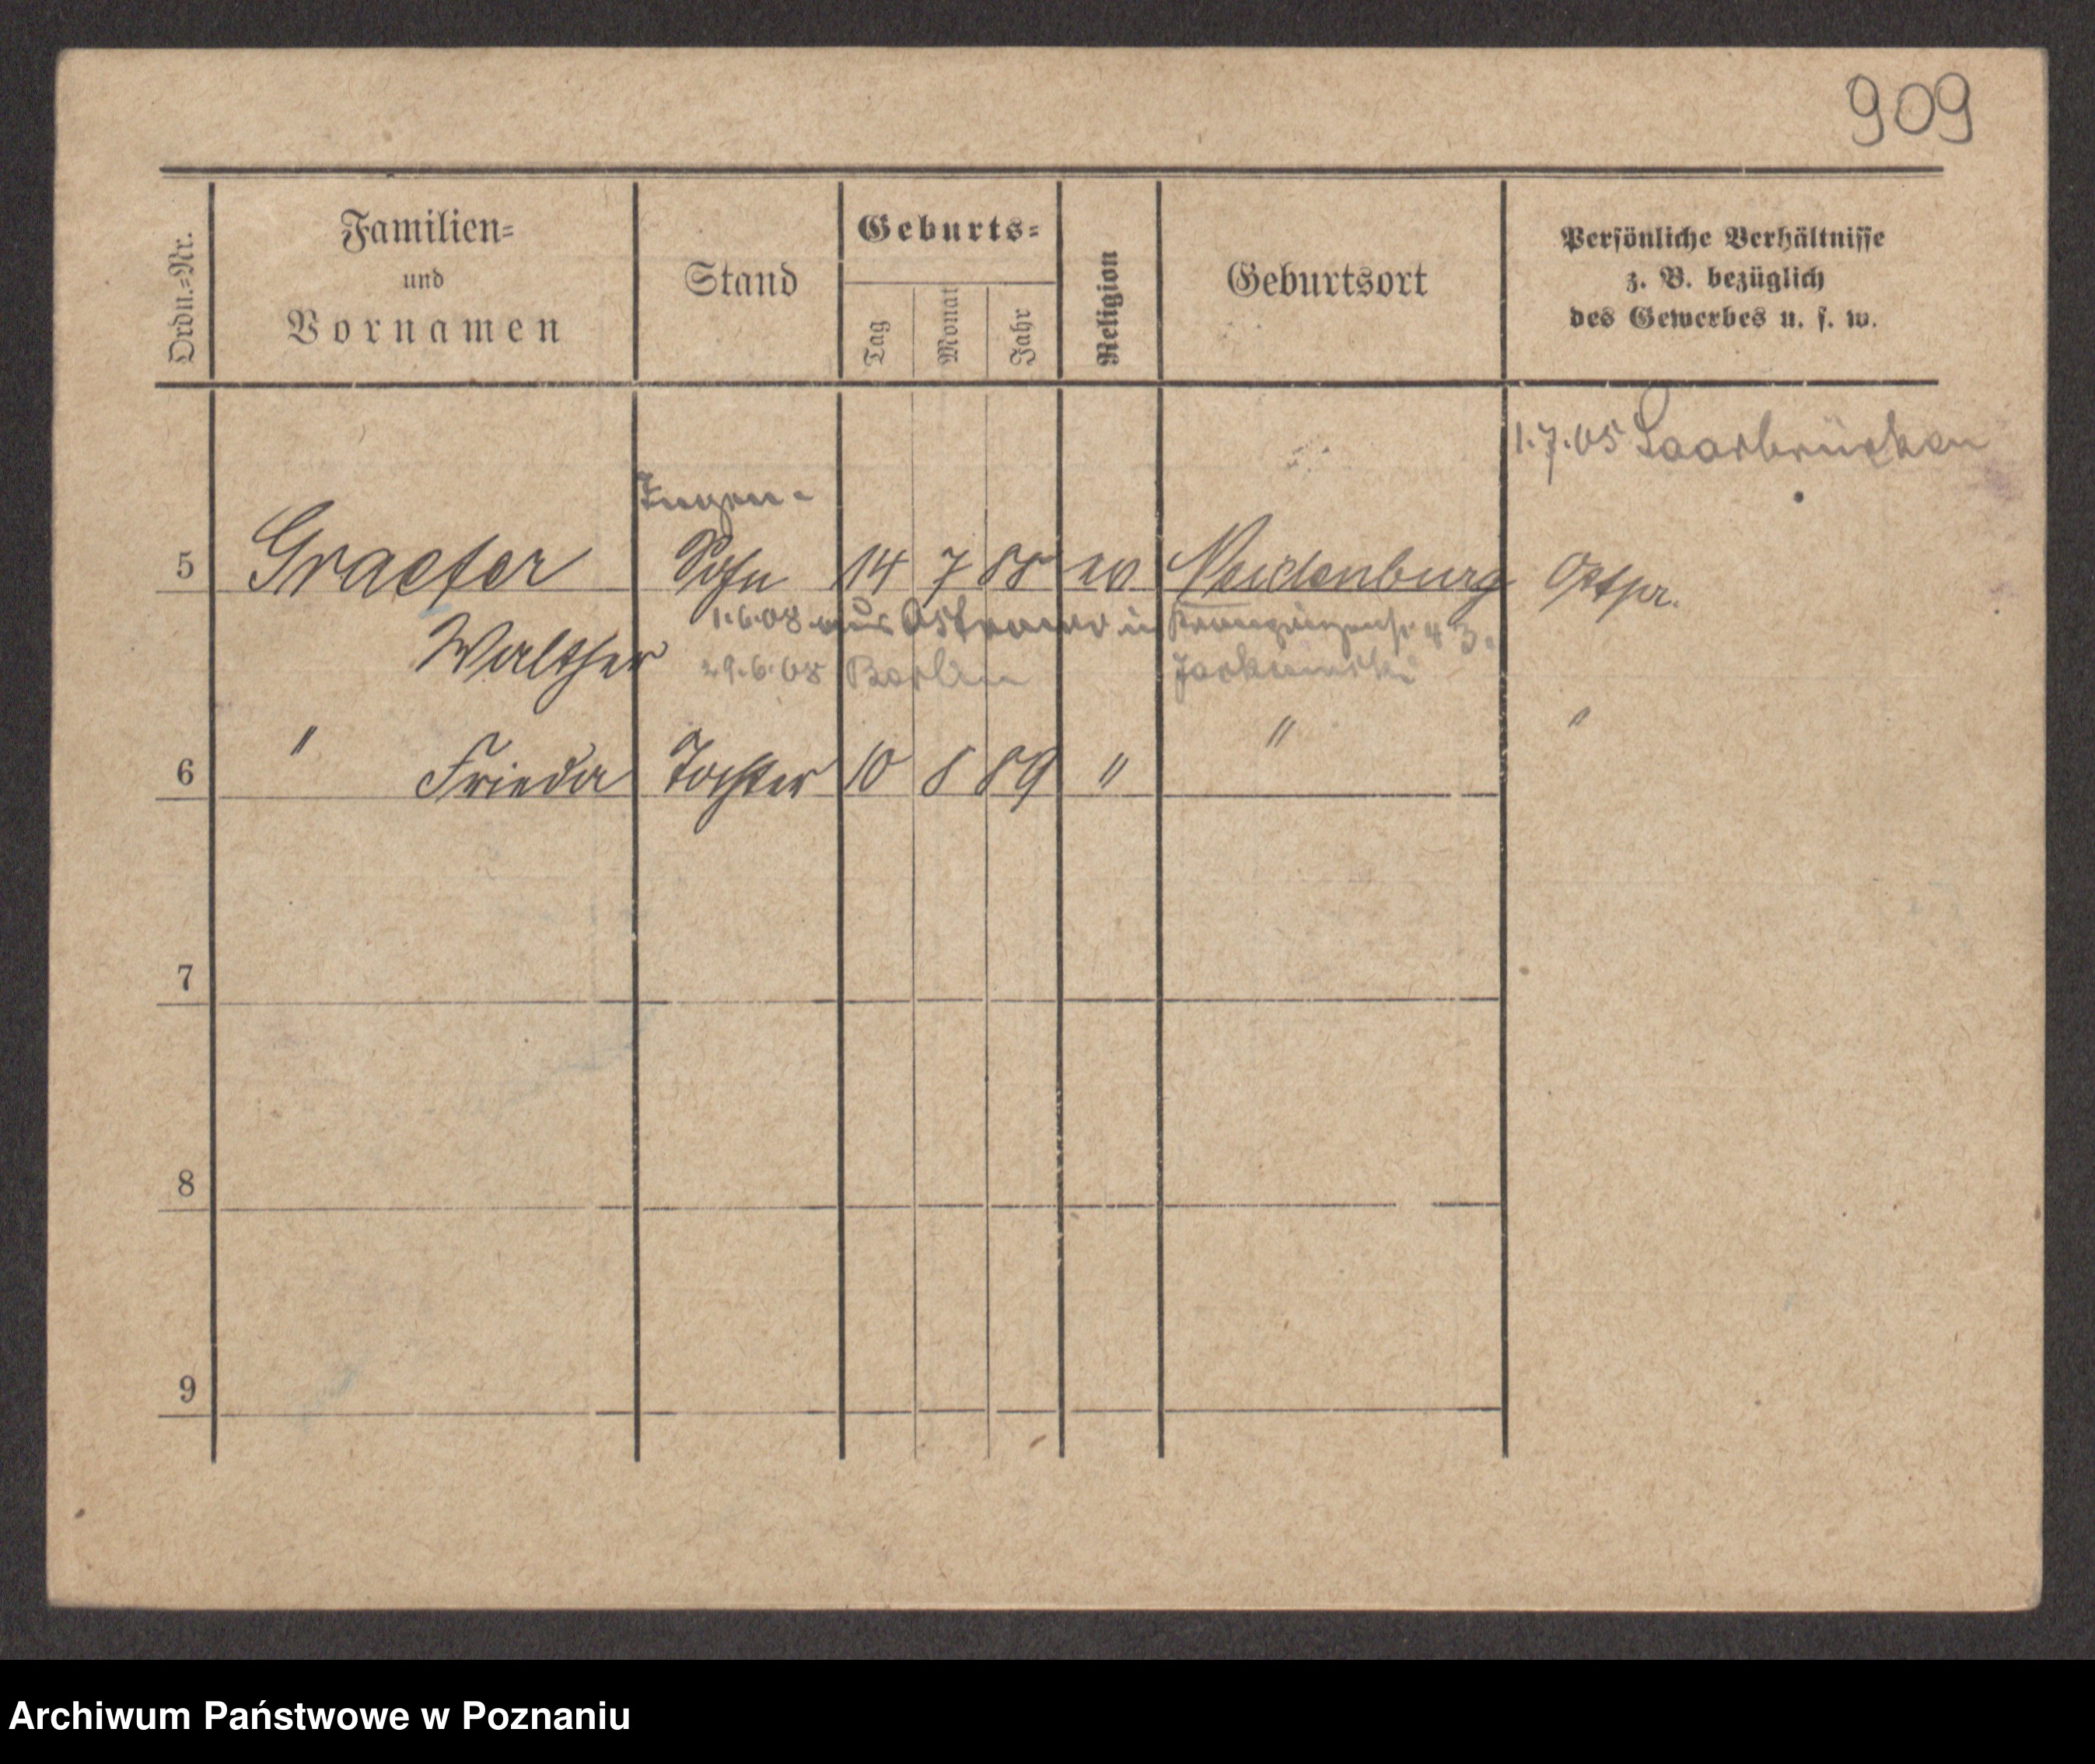 909
Ordn.-Nr. Familien= und Vornamen Stand Geburts= Tag Monat Jahr Religion Geburtsort Persönliche Verhältnisse z. B. bezüglich des Gewerbes u. s. w.
1.7.05 Saarbrücken
5 Graefer Sohn 14 7 88 Neidenburg Ostpr.
Walther 1.6.08 aus
29.6.08 Berlin
6 " Frieda Tochter 10 8 89 " " "
7
8
9
Archiwum Państwowe w Poznaniu